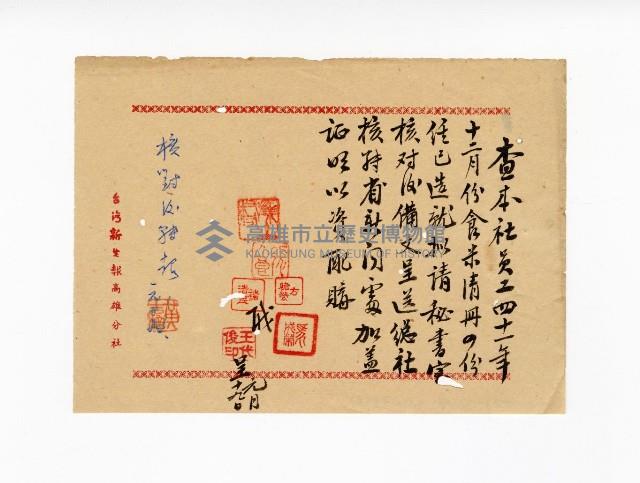 查本社員工四十一年
十二月份食米清冊四份
任已造就擬請秘書室
核对後備文呈送總社
核轉省新聞處加盖
証明以資配購
職
呈元月
核對後轉報
台灣新生報高雄分社
高雄市立歷史博物館
KAOHSIUNG MUSEUM OF HISTORY